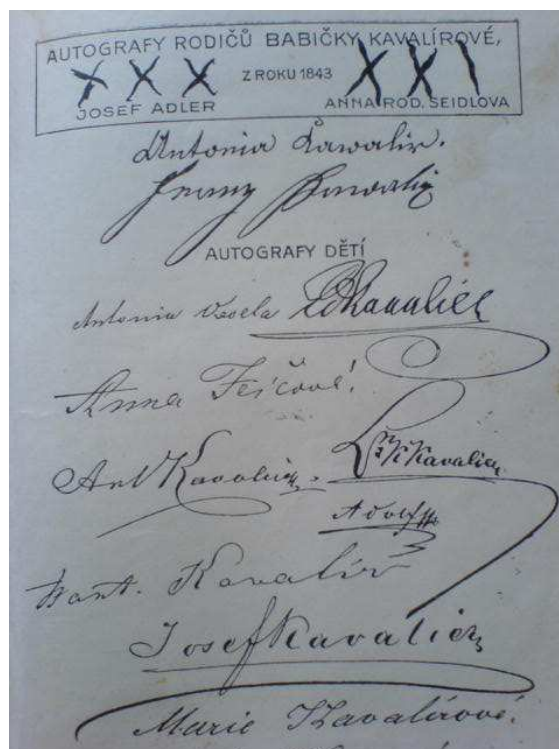 AUTOGRAFY RODIČŮ BABIČKY KAVALÍROVÉ,
XXX Z ROKU 1843 XXX
JOSEF ADLER ANNA ROD. SEIDLOVA
Antonia Kawalir.
Kawalir
AUTOGRAFY DĚTÍ
Antonia Vesela Kavalier
Anna
Ant Kavalier Kavalier
Adolf
Frant. Kavalír
Josef Kavalier
Marie Kavalírová.